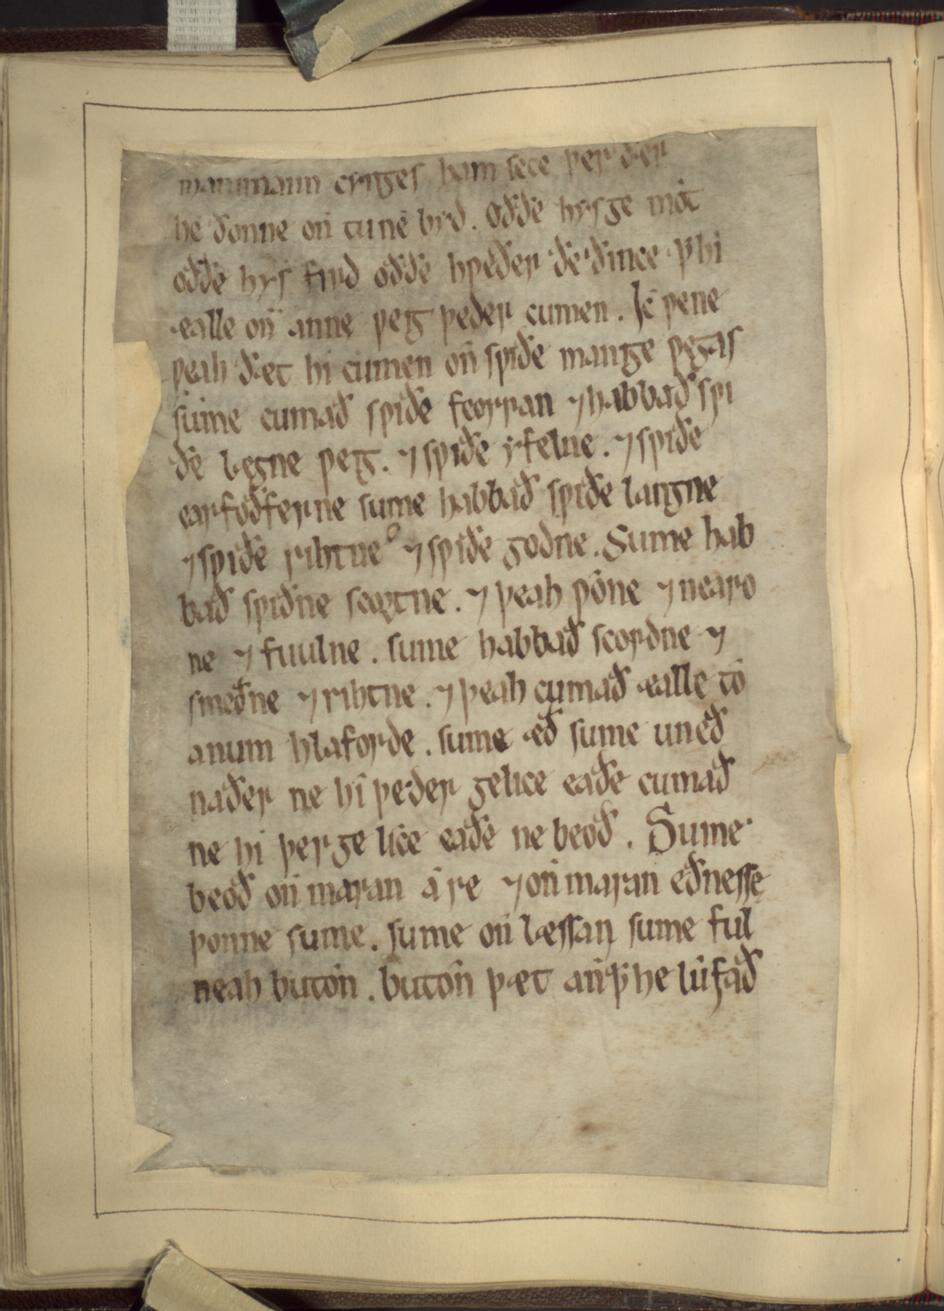 manimann cynges ham sece þer ðer
he ðonne on tune byð. Oððe hys ge mot
oððe hys fird oððe hƿeðer ðe ðince ꝥ hi
ealle on anne ƿeig þeder cumen. Ic ƿene
þeah ðæt hi cumen on sƿiðe manige ƿegas
sume cumað sƿiðe feorran ⁊ habbað sƿi
ðe længne ƿeig. ⁊ sƿiðe yfelne. ⁊ sƿiðe
earfoðferne sume habbað sƿiðe langne
⁊ sƿiðe rihtne ⁊ sƿiðe godne. Sume hab
bað sƿiðne scortne. ⁊ þeah ƿone ⁊ nearo
ne ⁊ fuulne. sume habbað scordne ⁊
smeðne ⁊ rihtne. ⁊ þeah cumað ealle to
anum hlaforde. sume æð sume uneð
naðer ne hi þeder gelice eaðe cumað
ne hi þer ge lice eaðe ne beoð. Sume
beoð on maran are ⁊ on maran eðnesse
þonne sume. sume on læssan sume ful
neah buton. buton þæt an ꝥ he lufað